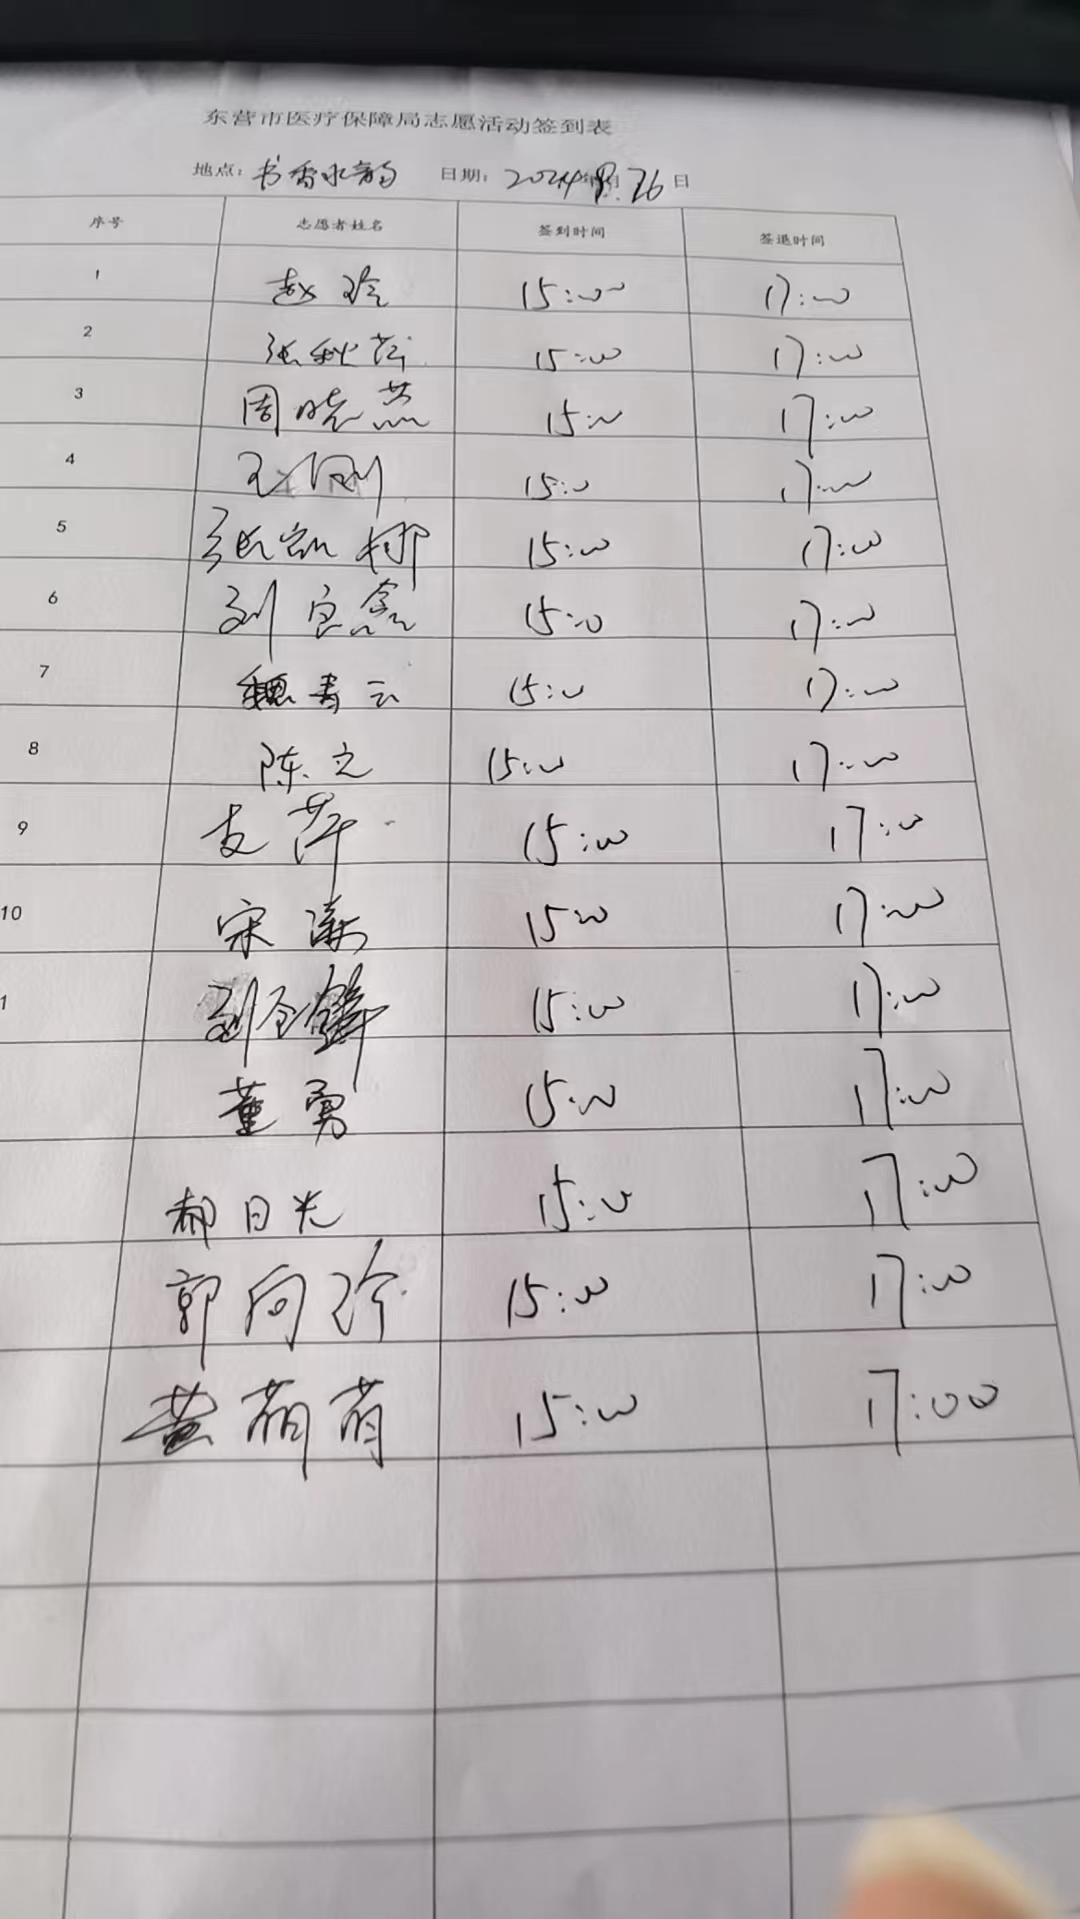 东营市医疗保障局志愿活动签到表
地点：书香水韵 日期：2024年 月26日
序号 志愿者姓名 签到时间 签退时间
1 赵玲 15:00 17:00
2 张秋 15:00 17:00
3 周晓燕 15:00 17:00
4 王刚 15:00 17:00
5 张凯娜 15:00 17:00
6 刘良鑫 15:00 17:00
7 魏青云 15:00 17:00
8 陈立 15:00 17:00
9 支萍 15:00 17:00
10 宋潇 15:00 17:00
1 刘金锋 15:00 17:00
董勇 15:00 17:00
郝日光 15:00 17:00
郭向珍 15:00 17:00
黄萌萌 15:00 17:00